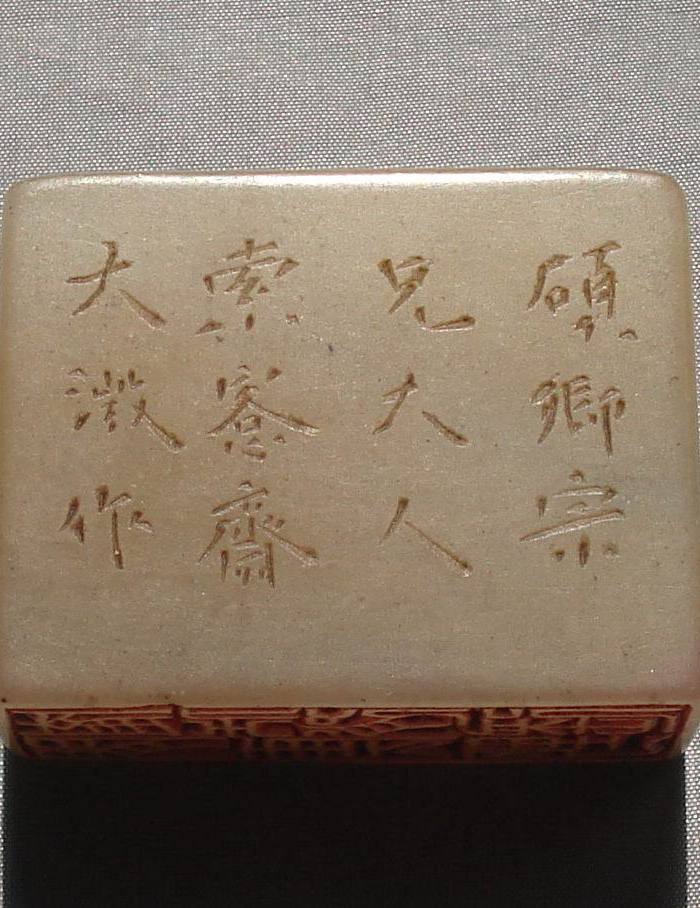 碩卿宗
兄大人
索窓齋
大澂作